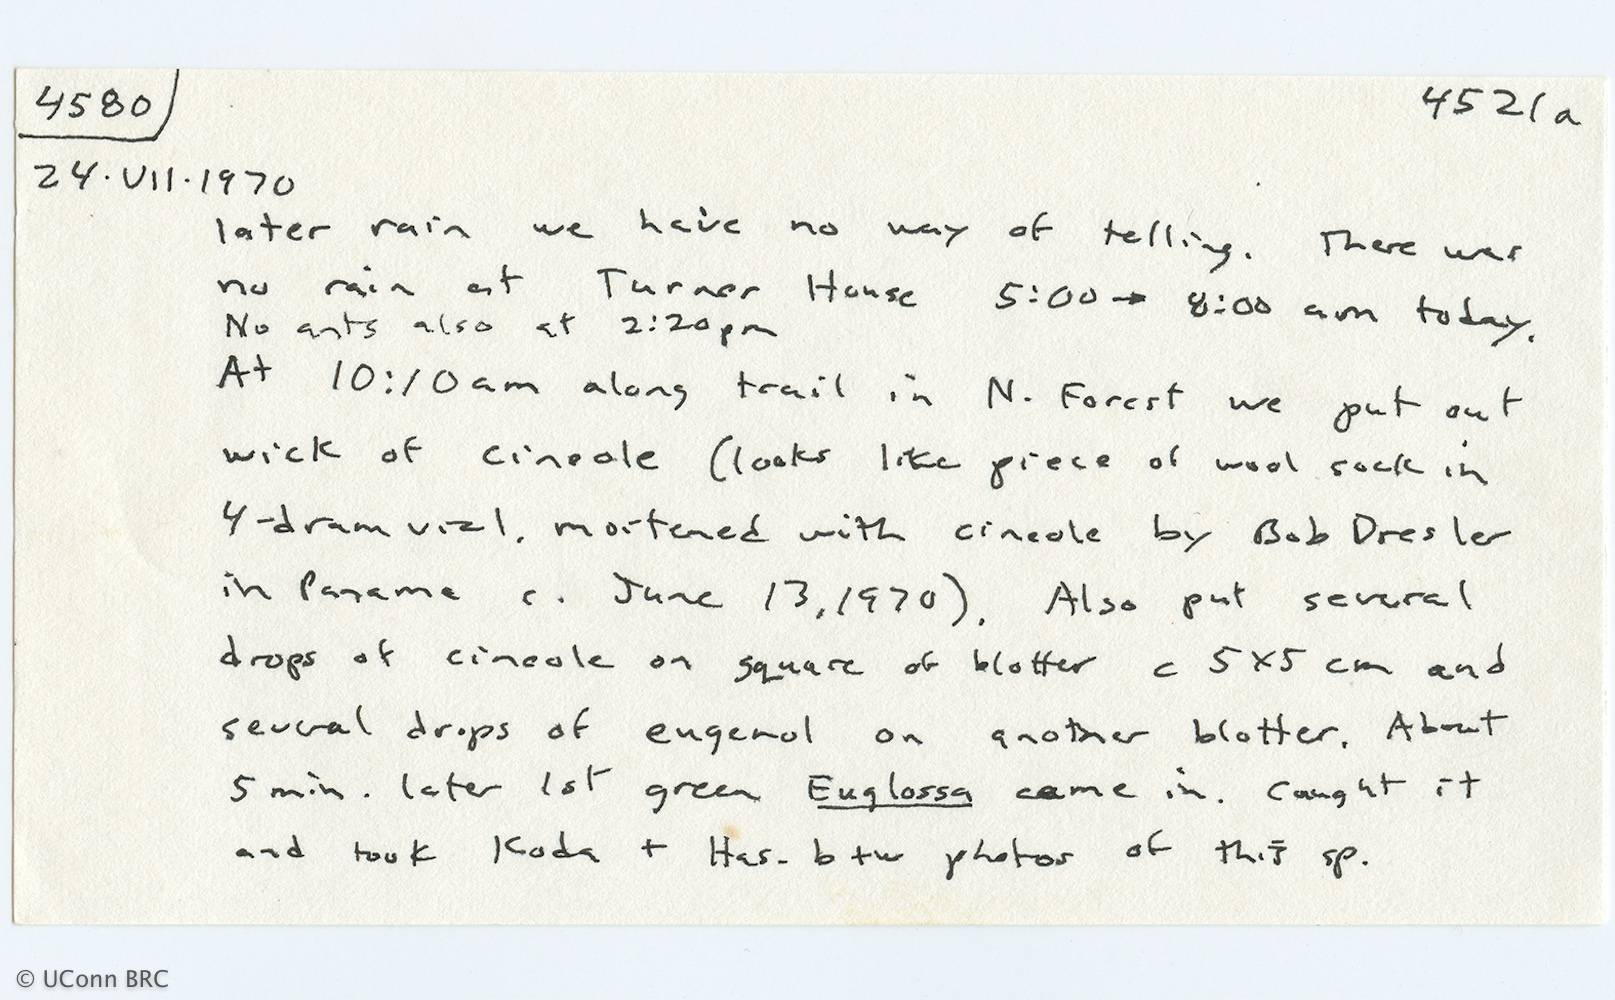 4580
4521a
24.VII.1970
later rain we have no way of telling. There was
no rain at Turner House 5:00 → 8:00 am today.
No ants also at 2:20pm
At 10:10am along trail in N. Forest we put out
wick of cineole (looks like piece of wool sock in
4-dram vial, moistened with cineole by Bob Dresler
in Panama c. June 13, 1970). Also put several
drops of cineole on square of blotter c 5x5 cm and
several drops of eugenol on another blotter. About
5 min. later 1st green Euglossa came in. Caught it
and took Koda + Has. b+w photos of this sp.
© UConn BRC